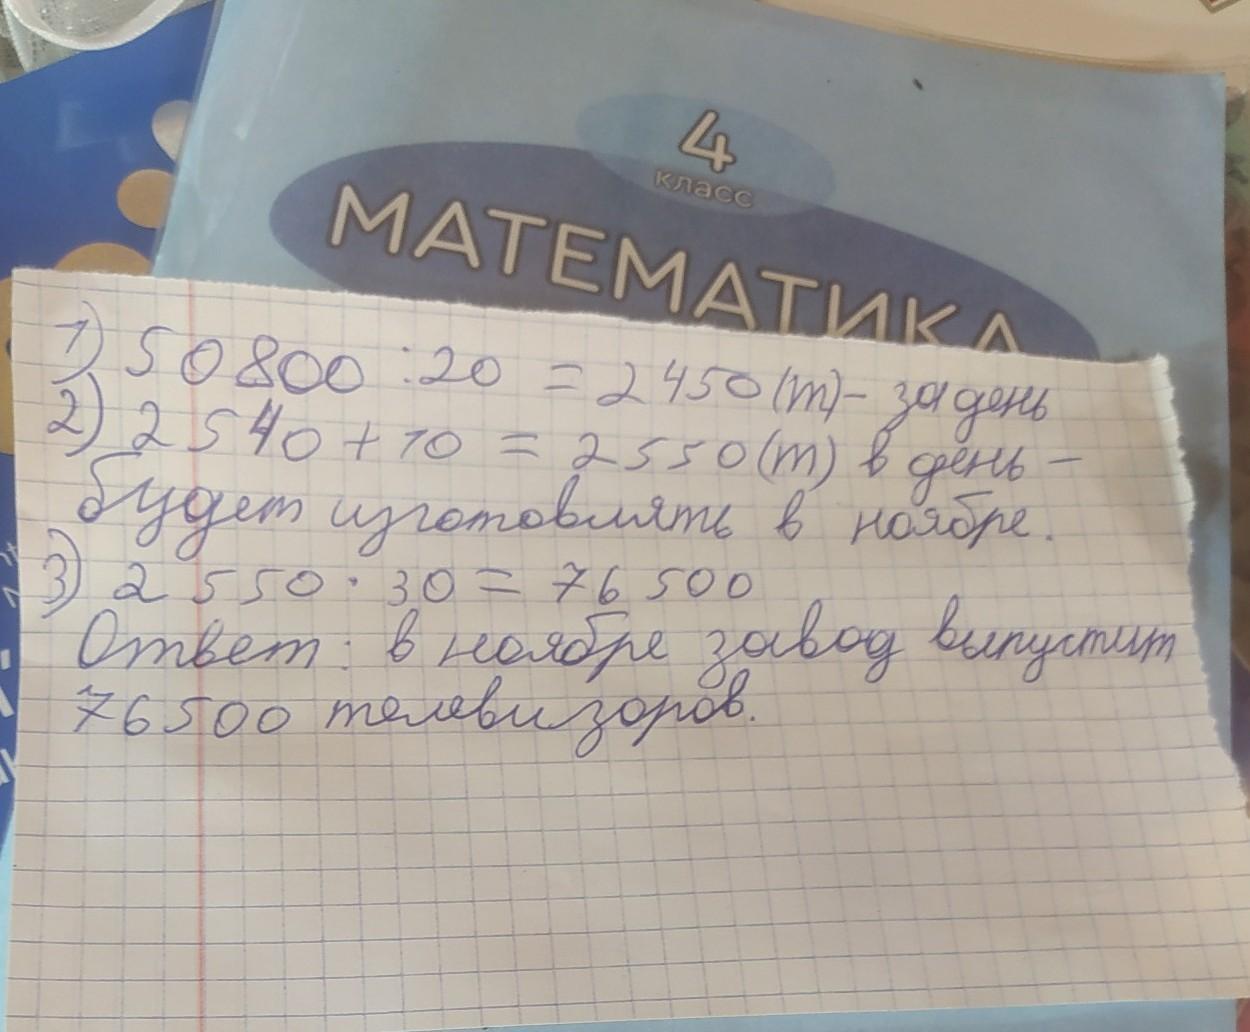 4
класс
МАТЕМАТИКА
1) 50800 : 20 = 2450 (т) - за день
2) 2540 + 10 = 2550 (т) в день -
будет изготовлять в ноябре.
3) 2550 · 30 = 76500
Ответ: в ноябре завод выпустит
76500 телевизоров.